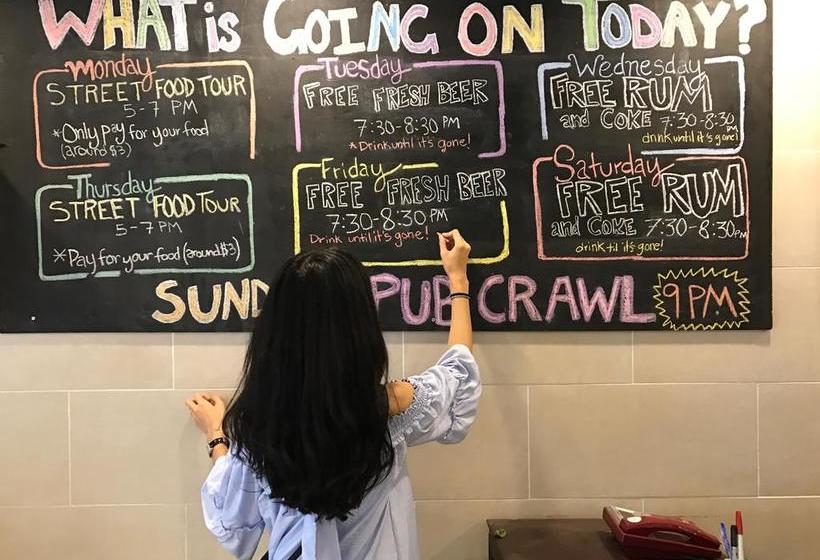 WHAT is GOING ON TODAY?
Monday
STREET FOOD TOUR
5-7 PM
*Only pay for your food
(around $3)
Tuesday
FREE FRESH BEER
7:30-8:30 PM
*Drink until it's gone!
Wednesday
FREE RUM
and COKE 7:30-8:30PM
drink until it's gone!
Thursday
STREET FOOD TOUR
5-7 PM
*Pay for your food (around $3)
Friday
FREE FRESH BEER
7:30-8:30 PM
Drink until it's gone!
Saturday
FREE RUM
and COKE 7:30-8:30PM
drink til it's gone!
PUB CRAWL 9 PM